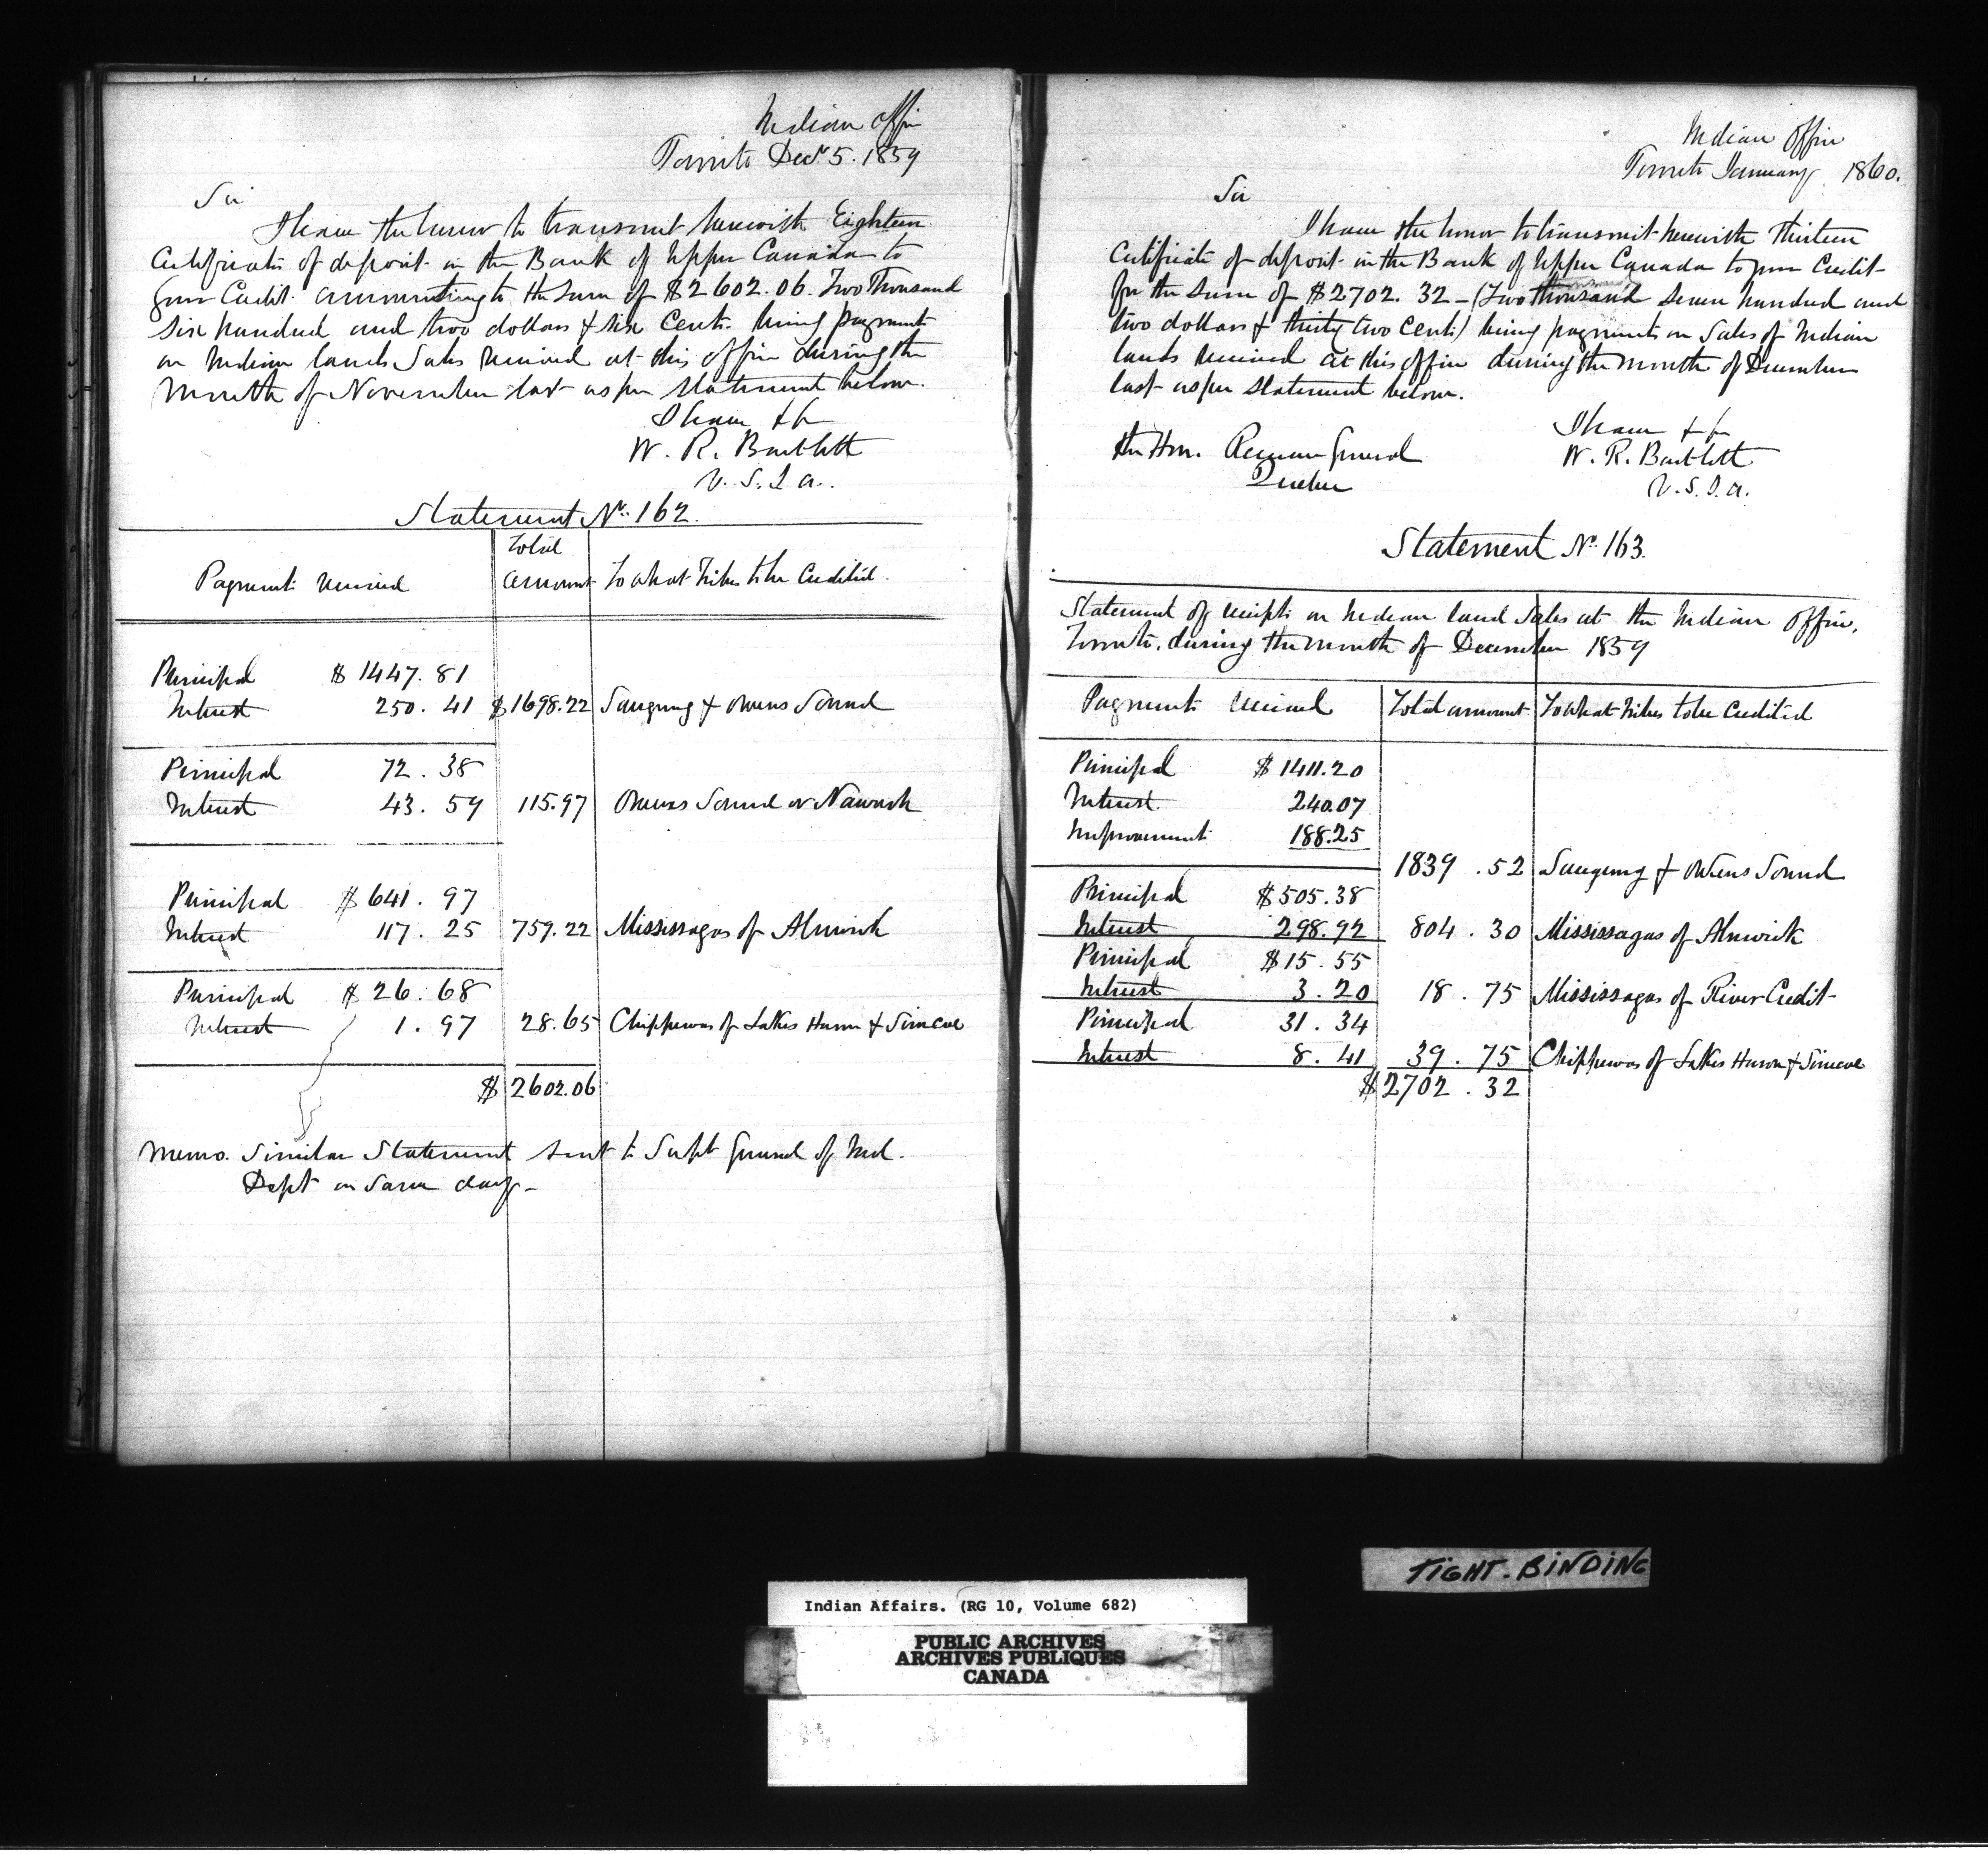 Indian Office
Toronto Decr 5. 1859
Sir
I have the honor to transmit herewith Eighteen
Certificates of deposit in the Bank of Upper Canada to
your Credit amounting to the Sum of $2602.06. Two Thousand
six hundred and two dollars & six Cents. being payments
on Indian lands Sales received at this office during the
month of November last as per statement below.
I have &c
W. R. Bartlett
V. S. I a.
Statement No. 162.
Payments received
Total amount
To what Tribes to be Credited.
Principal $ 1447.81
Interest 250.41 $1698.22 Saugeeng & Owens Sound
Principal 72.38
Interest 43.59 115.97 Owens Sound or Nawash
Principal $ 641.97
Interest 117.25 759.22 Mississagas of Alnwick
Principal $ 26.68
Interest 1.97 28.65 Chippewas of Lakes Huron & Simcoe
$ 2602.06
Memo. Similar Statement sent to Supt General of Ind.
Dept on same day-
Indian Office
Toronto January 1860.
Sir
I have the honor to transmit herewith Thirteen
Certificate of deposit in the Bank of Upper Canada to your Credit
for the Sum of $2702.32 - (Two thousand seven hundred and
two dollars & thirty two Cents) being payments on Sales of Indian
lands received at this office during the month of December
last as per Statement below.
I have &c
The Hon. Receiver General W. R. Bartlett
Quebec V. S. I. a.
Statement No. 163.
Statement of receipts on Indian land Sales at the Indian Office,
Toronto, during the month of December 1859
Payments received Total amount To what Tribes to be Credited
Principal $ 1411.20
Interest 240.07
Improvement 188.25
1839.52 Saugeeng & Owens Sound
Principal $505.38
Interest 298.92 804.30 Mississagas of Alnwick
Principal $15.55
Interest 3.20 18.75 Mississagas of River Credit
Principal 31.34
Interest 8.41 39.75 Chippewas of Lakes Huron & Simcoe
$2702.32
TIGHT. BINDING
Indian Affairs. (RG 10, Volume 682)
PUBLIC ARCHIVES
ARCHIVES PUBLIQUES
CANADA